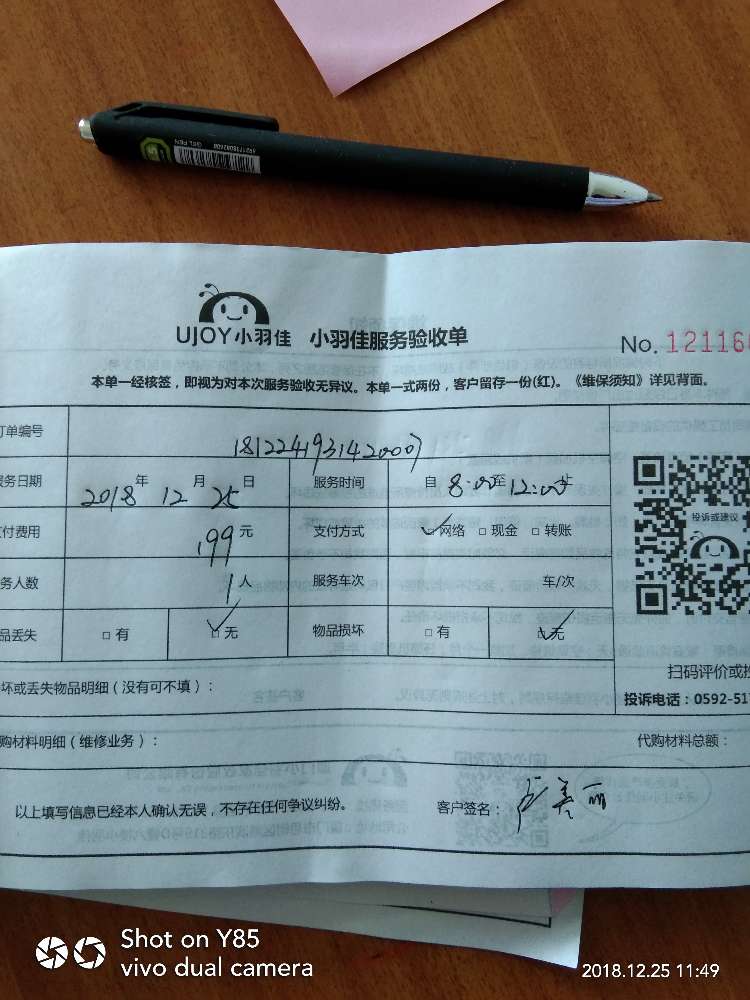 GEL PEN
UJOY小羽佳 小羽佳服务验收单
No. 12116
本单一经核签，即视为对本次服务验收无异议。本单一式两份，客户留存一份(红)。《维保须知》详见背面。
订单编号 1812241931420007
服务日期 2018年 12月 25日 服务时间 自 8:00至12:00止
支付费用 199元 支付方式 网络 □ 现金 □ 转账
服务人数 1人 服务车次 车/次
物品丢失 □ 有 □ 无 物品损坏 □ 有 □ 无
投诉或建议
扫码评价或投
投诉电话：0592-517
损坏或丢失物品明细（没有可不填）：
代购材料明细（维修业务）： 代购材料总额：
以上填写信息已经本人确认无误，不存在任何争议纠纷。 客户签名： 美丽
Shot on Y85
vivo dual camera
2018.12.25 11:49